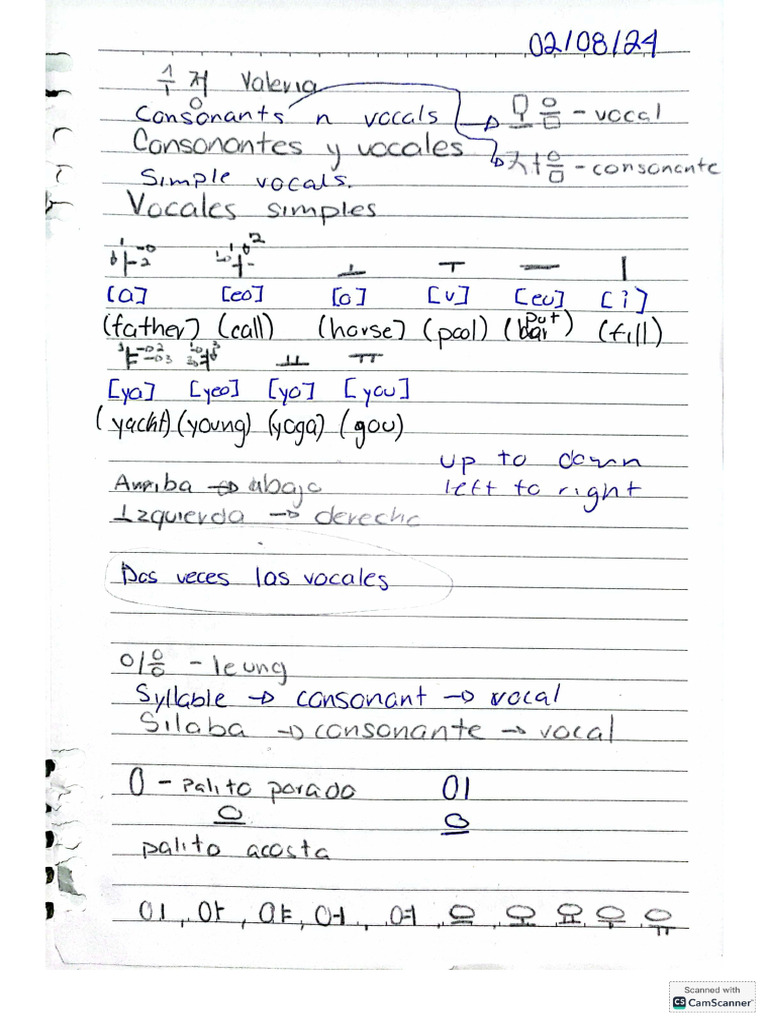 02/08/24
수정 Valeria
Consonants n vocals → 모음 - vocal
Consonantes y vocales → 자음 - consonante
Simple vocals.
Vocales simples
ㅏ ㅓ ㅗ ㅜ ㅡ ㅣ
[a] [eo] [o] [u] [eu] [i]
(father) (call) (horse) (pool) (put) (fill)
ㅑ ㅕ ㅛ ㅠ
[ya] [yeo] [yo] [you]
(yacht) (young) (yoga) (you)
up to down
Arriba → abajo left to right
Izquierda → derecha
Dos veces las vocales
이응 - ieung
Syllable → consonant → vocal
Silaba → consonante → vocal
O - palito parado 이
으 으
palito acosta
이, 아, 야, 어, 여, 으, 오, 요, 우, 유